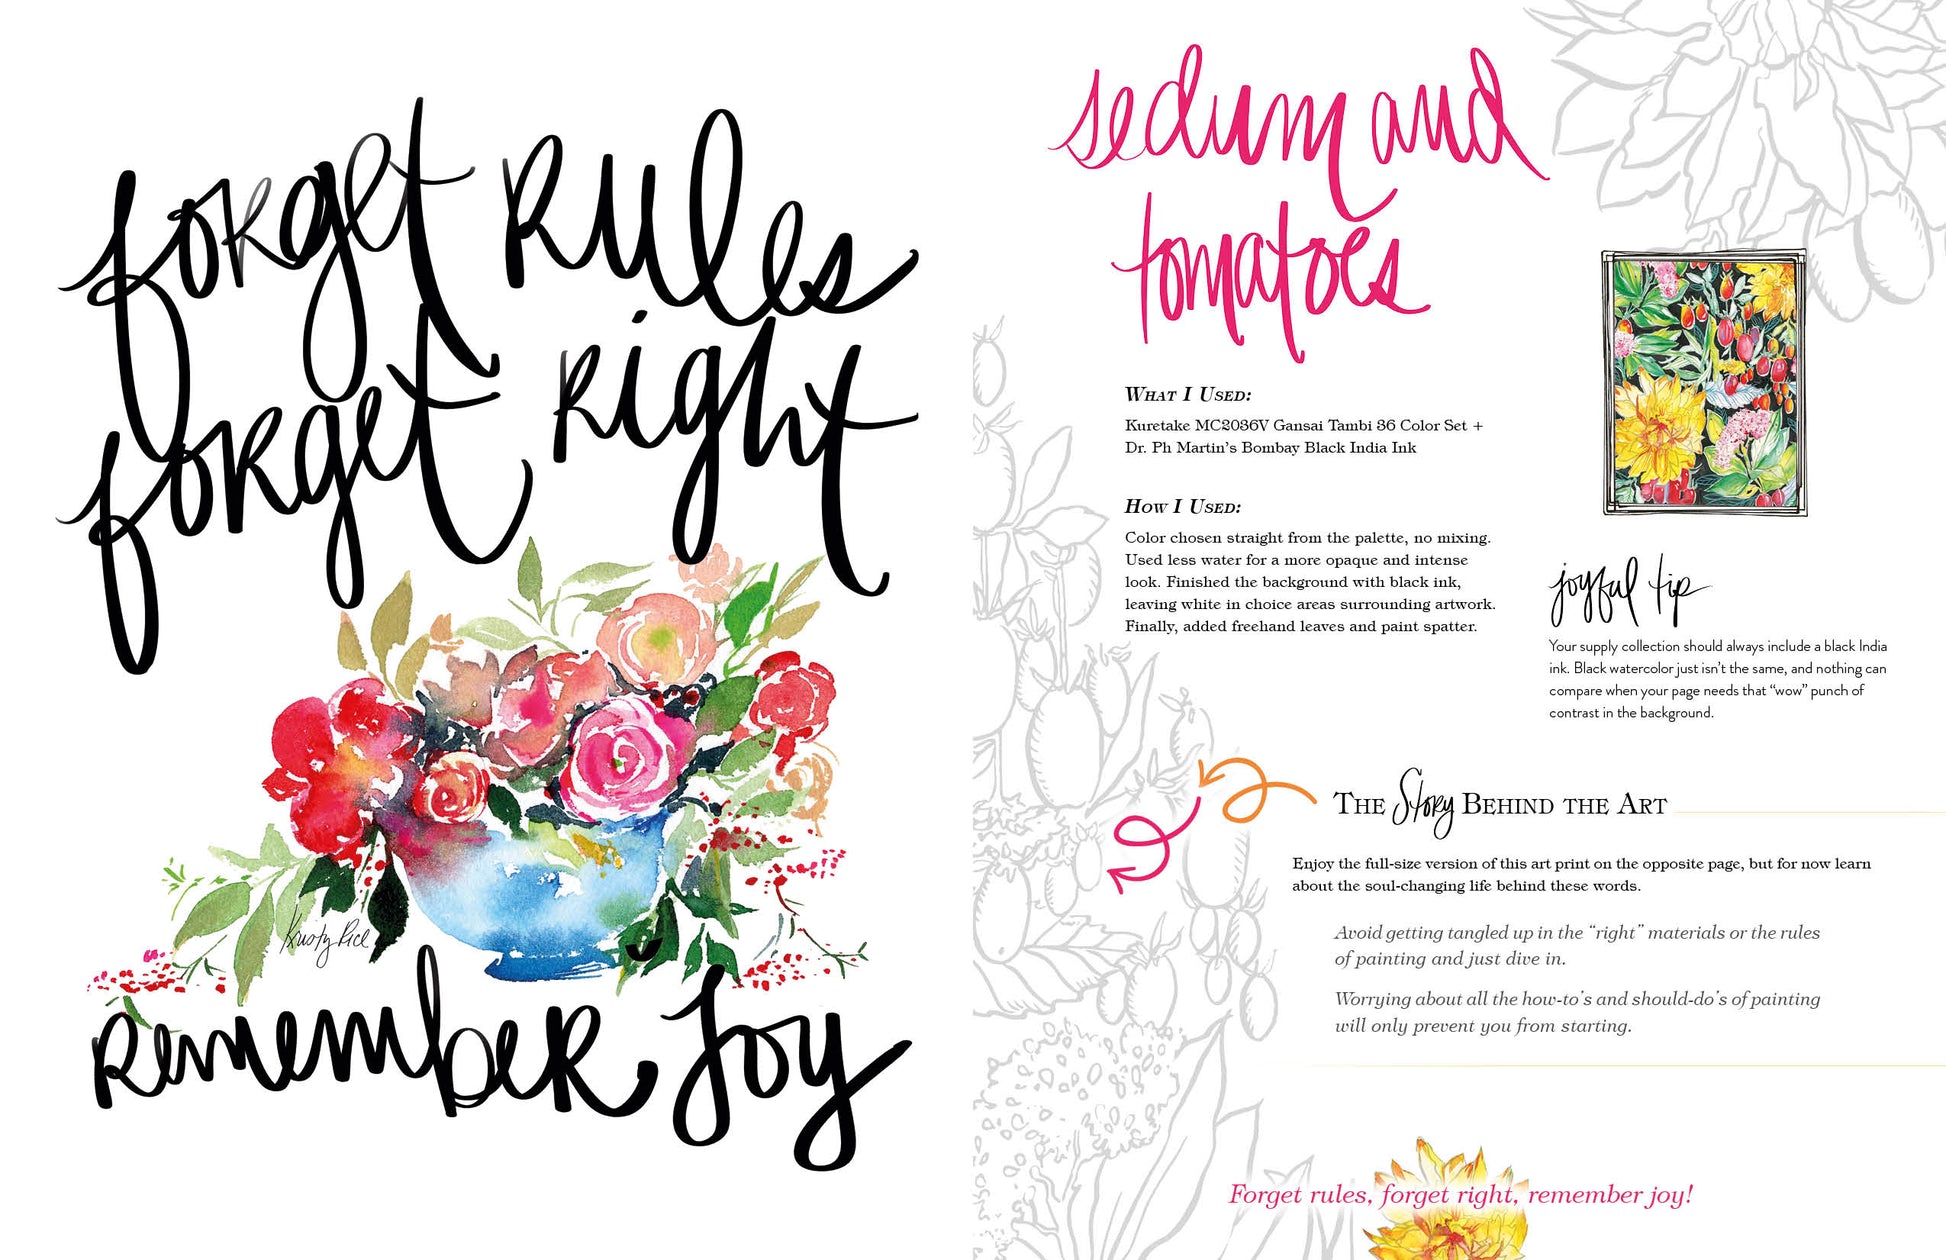 forget rules
forget right
Kristy Rice
remember joy
sedum and
tomatoes
What I Used:
Kuretake MC2036V Gansai Tambi 36 Color Set +
Dr. Ph Martin's Bombay Black India Ink
How I Used:
Color chosen straight from the palette, no mixing.
Used less water for a more opaque and intense
look. Finished the background with black ink,
leaving white in choice areas surrounding artwork.
Finally, added freehand leaves and paint spatter.
joyful tip
Your supply collection should always include a black India
ink. Black watercolor just isn't the same, and nothing can
compare when your page needs that “wow” punch of
contrast in the background.
The Story Behind the Art
Enjoy the full-size version of this art print on the opposite page, but for now learn
about the soul-changing life behind these words.
Avoid getting tangled up in the “right” materials or the rules
of painting and just dive in.
Worrying about all the how-to's and should-do's of painting
will only prevent you from starting.
Forget rules, forget right, remember joy!